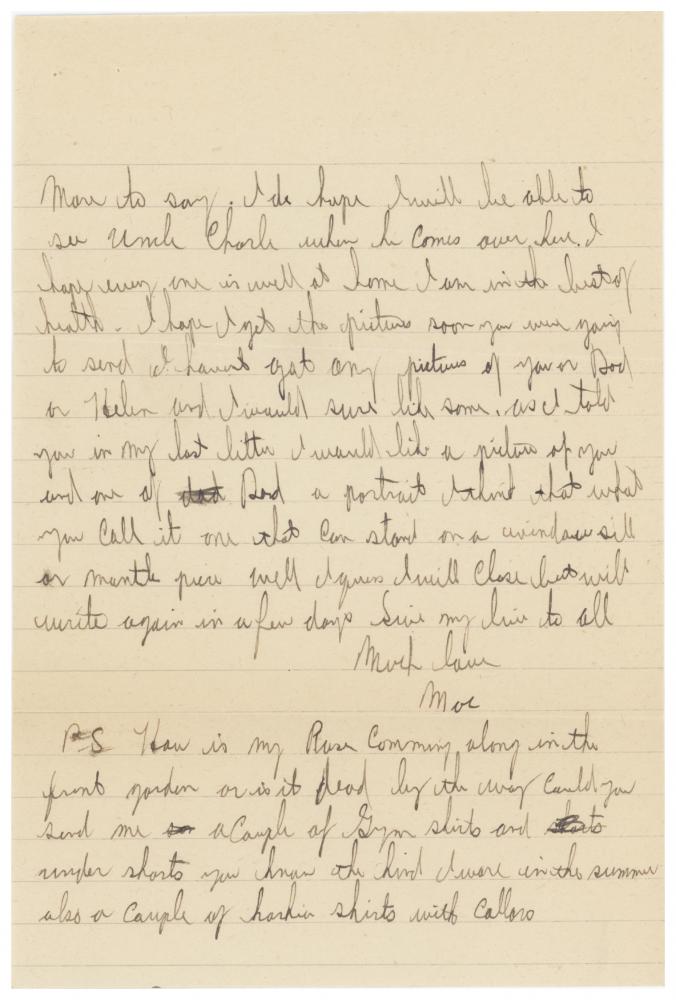 More to say. I do hope I will be able to
see Uncle Charle when he comes over here. I
hope every one is well at home I am in the best of
health. I hope I get the pictures soon you were going
to send I havent got any pictures of you or Dad
or Helen and I would sure like some. as I told
you in my last letter I would like a picture of you
and one of Dad a portrait I think that what
you call it one that can stand on a window sill
or mantle piece well I guess I will close but will
write again in a few days Give my love to all
Much love
Mac
P-S How is my Rose Comming along in the
front garden or is it dead by the way could you
send me a couple of Gym shirts and
under shorts you know the kind I wore in the summer
also a couple of harkin shirts with Collars